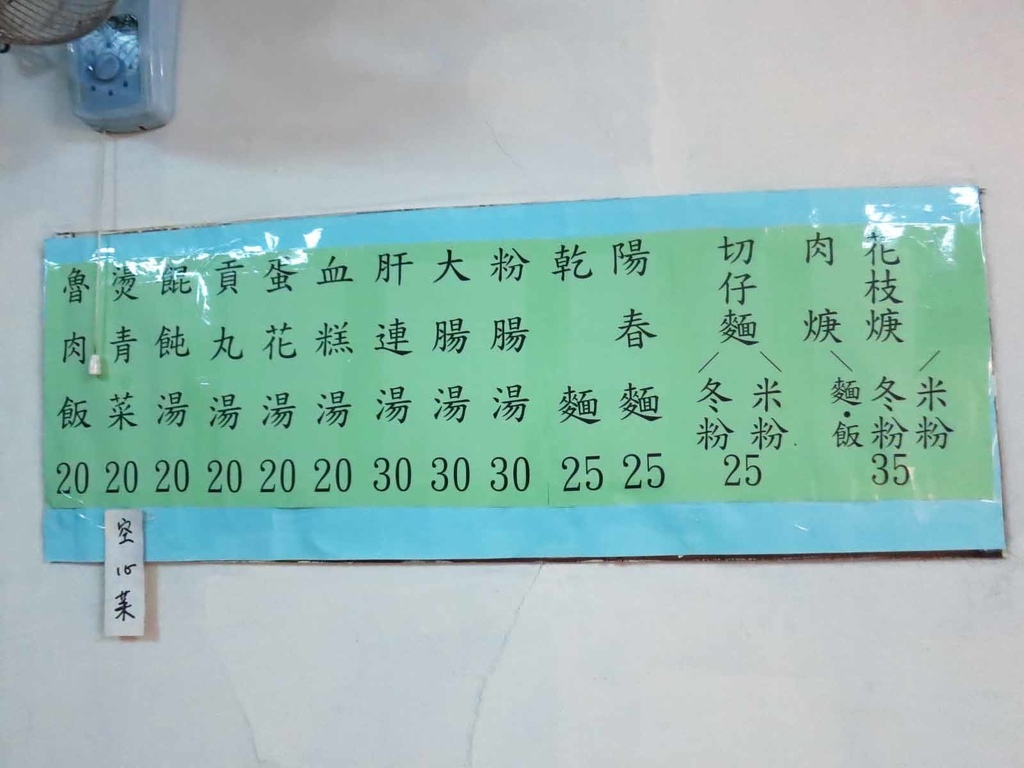 花枝焿
肉焿
米粉
冬粉
麵•飯
35
切仔麵
米粉
冬粉
25
陽春麵
25
乾麵
25
粉腸湯
30
大腸湯
30
肝連湯
30
血糕湯
20
蛋花湯
20
貢丸湯
20
餛飩湯
20
燙青菜
20
魯肉飯
20
空心菜